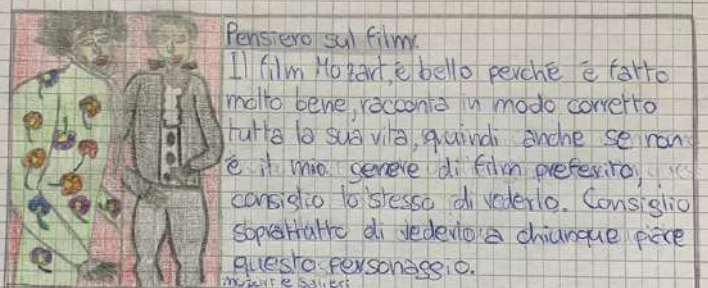 Pensiero sul film.
Il film Mozart, è bello perchè è fatto
molto bene, racconta in modo corretto
tutta la sua vita, quindi anche se non
è il mio genere di film preferito,
consiglio lo stesso di vederlo. Consiglio
soprattutto di vederlo a chiunque piace
questo personaggio.
mozart e salieri